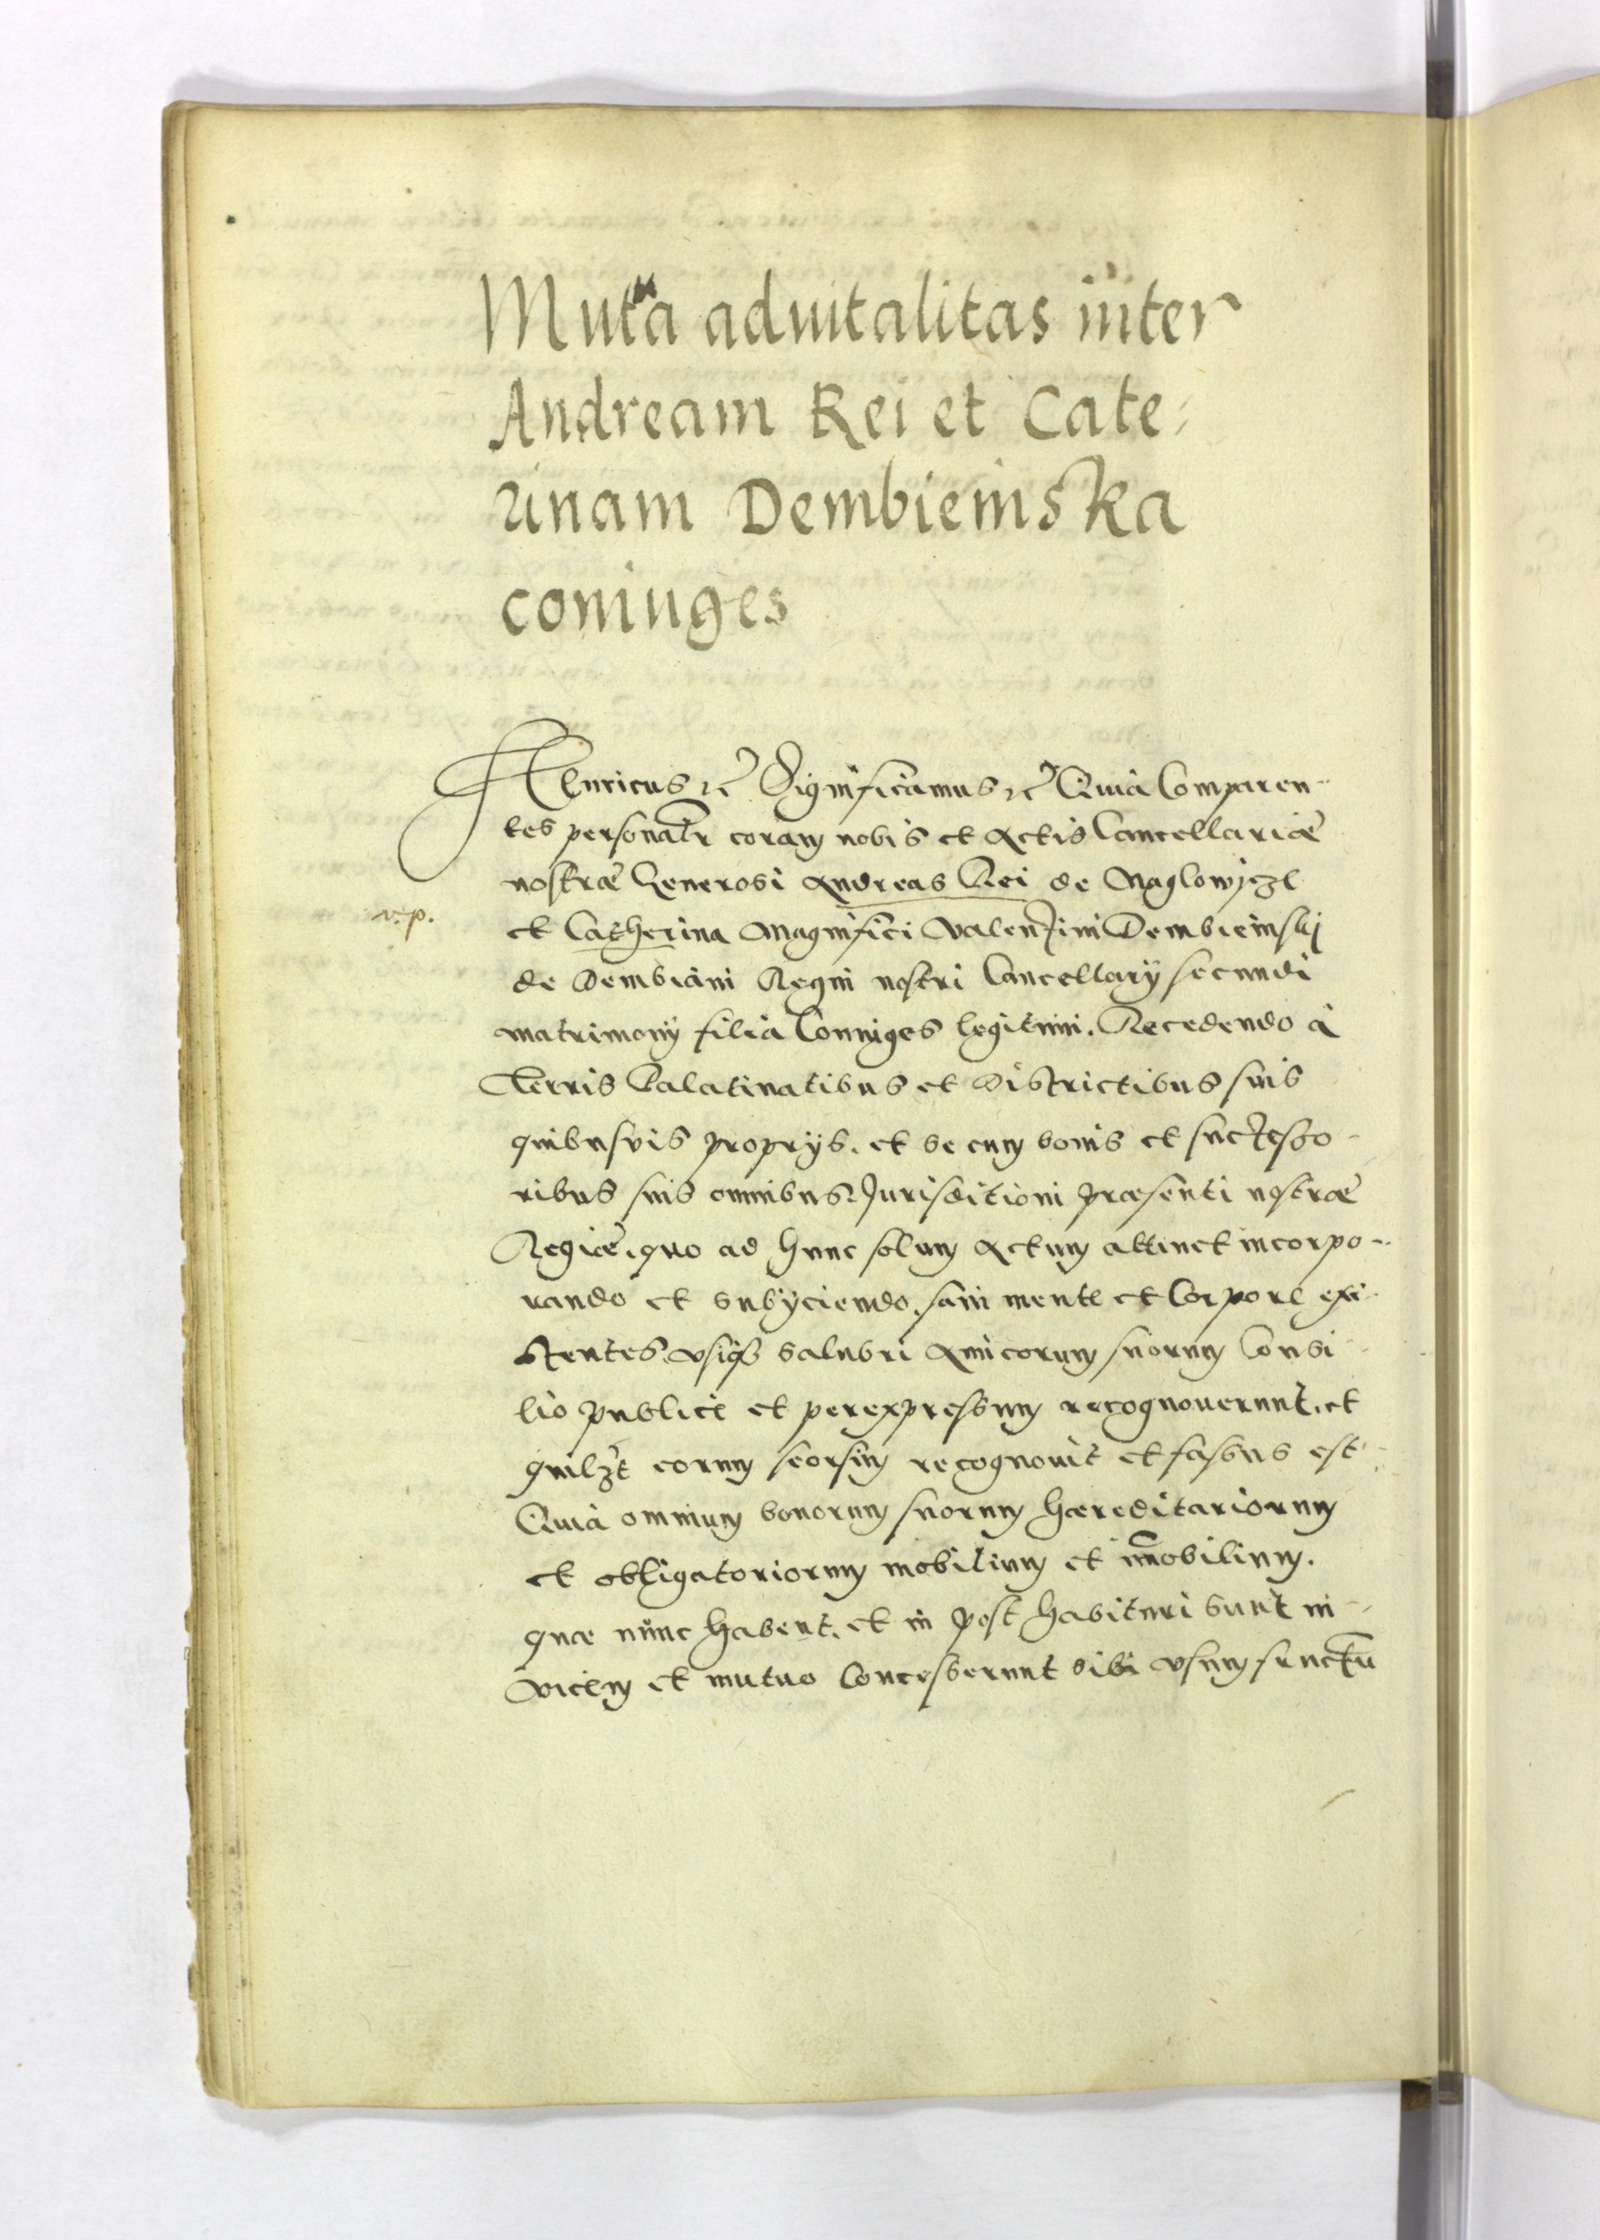 Mutua aduitalitas inter
Andream Rei et Cate-
rinam Dembiemska
coniuges
Henricus etc Significamus etc Quia Comparen-
tes personalr coram nobis et Actis Cancellariæ
nostræ Generosi Andreas Rei de Naglowicze
v.p.
et Catherina Magnifici Valentini Dembiemskÿ
de Dembiani Regni nostri Cancellarÿ secundi
matrimonÿ filia Coniuges legitimi. Recedendo à
Terris Palatinatibus et Districtibus suis
quibusvis proprÿs. et se cum bonis et succesßo-
ribus suis omnibus Jurisditioni præsenti nostræ
Regiæ, quo ad hunc solum Actum attinet incorpo-
rando et subÿciendo, sani mente et Corpore exi-
stentes, vsiq3 salubri Amicorum suorum Consi-
lio publice et perexpressum recognouerunt, et
quilzt eorum seorsim recognouit et fassus est
Quia omnium bonorum suorum hæreditariorum
et obligatoriorum mobilium et immobilium.
quæ nunc habent, et in post habituri sunt in-
vicem et mutuo Concesserunt sibi vsum fructu